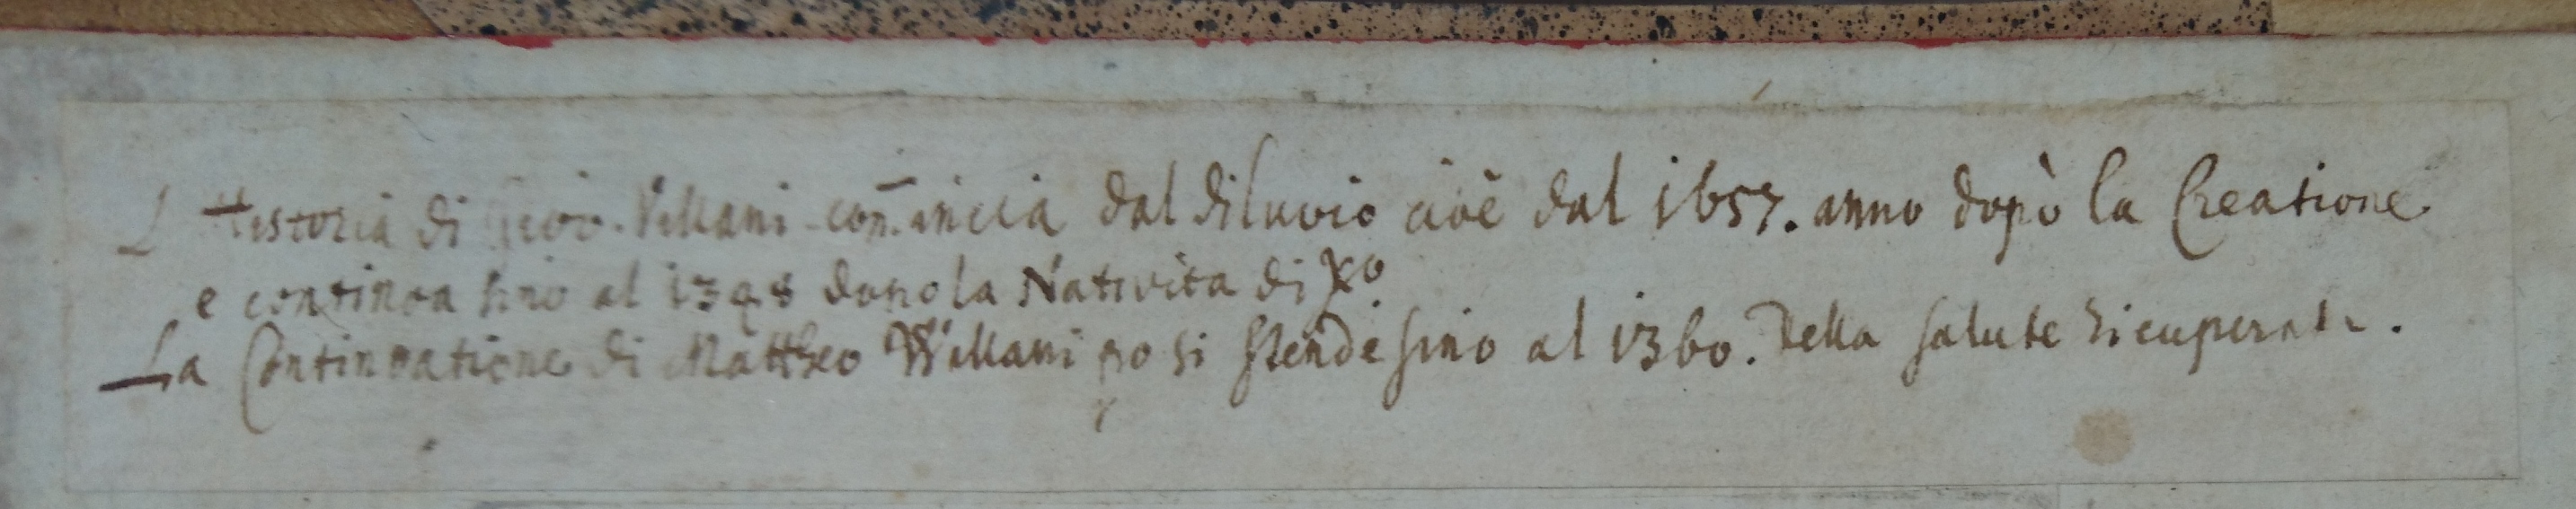 L Historia di Giov. Villani comincia dal diluvio cioè dal 1657. anno dopò la Creatione
e continoa sino al 1348 dopo la Natività di Xo
La Continoatione di Mattheo Villani po si stende sino al 1360. della salute ricuperata.